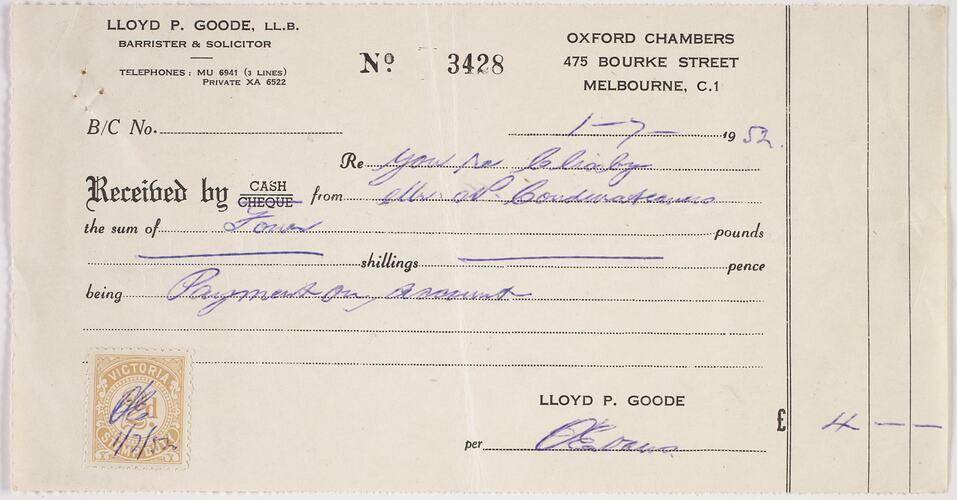 LLOYD P. GOODE, LL.B.
BARRISTER & SOLICITOR
TELEPHONES : MU 6941 (3 LINES)
PRIVATE XA 6522
Nº 3428
OXFORD CHAMBERS
475 BOURKE STREET
MELBOURNE, C.1
B/C No.
1-7-1952.
Re You
Received by CASH CHEQUE from Mr. N.
the sum of Four pounds
shillings pence
being Payment on account
VICTORIA
STAMP DUTY
1/7/52
LLOYD P. GOODE
per
£ 4 — —